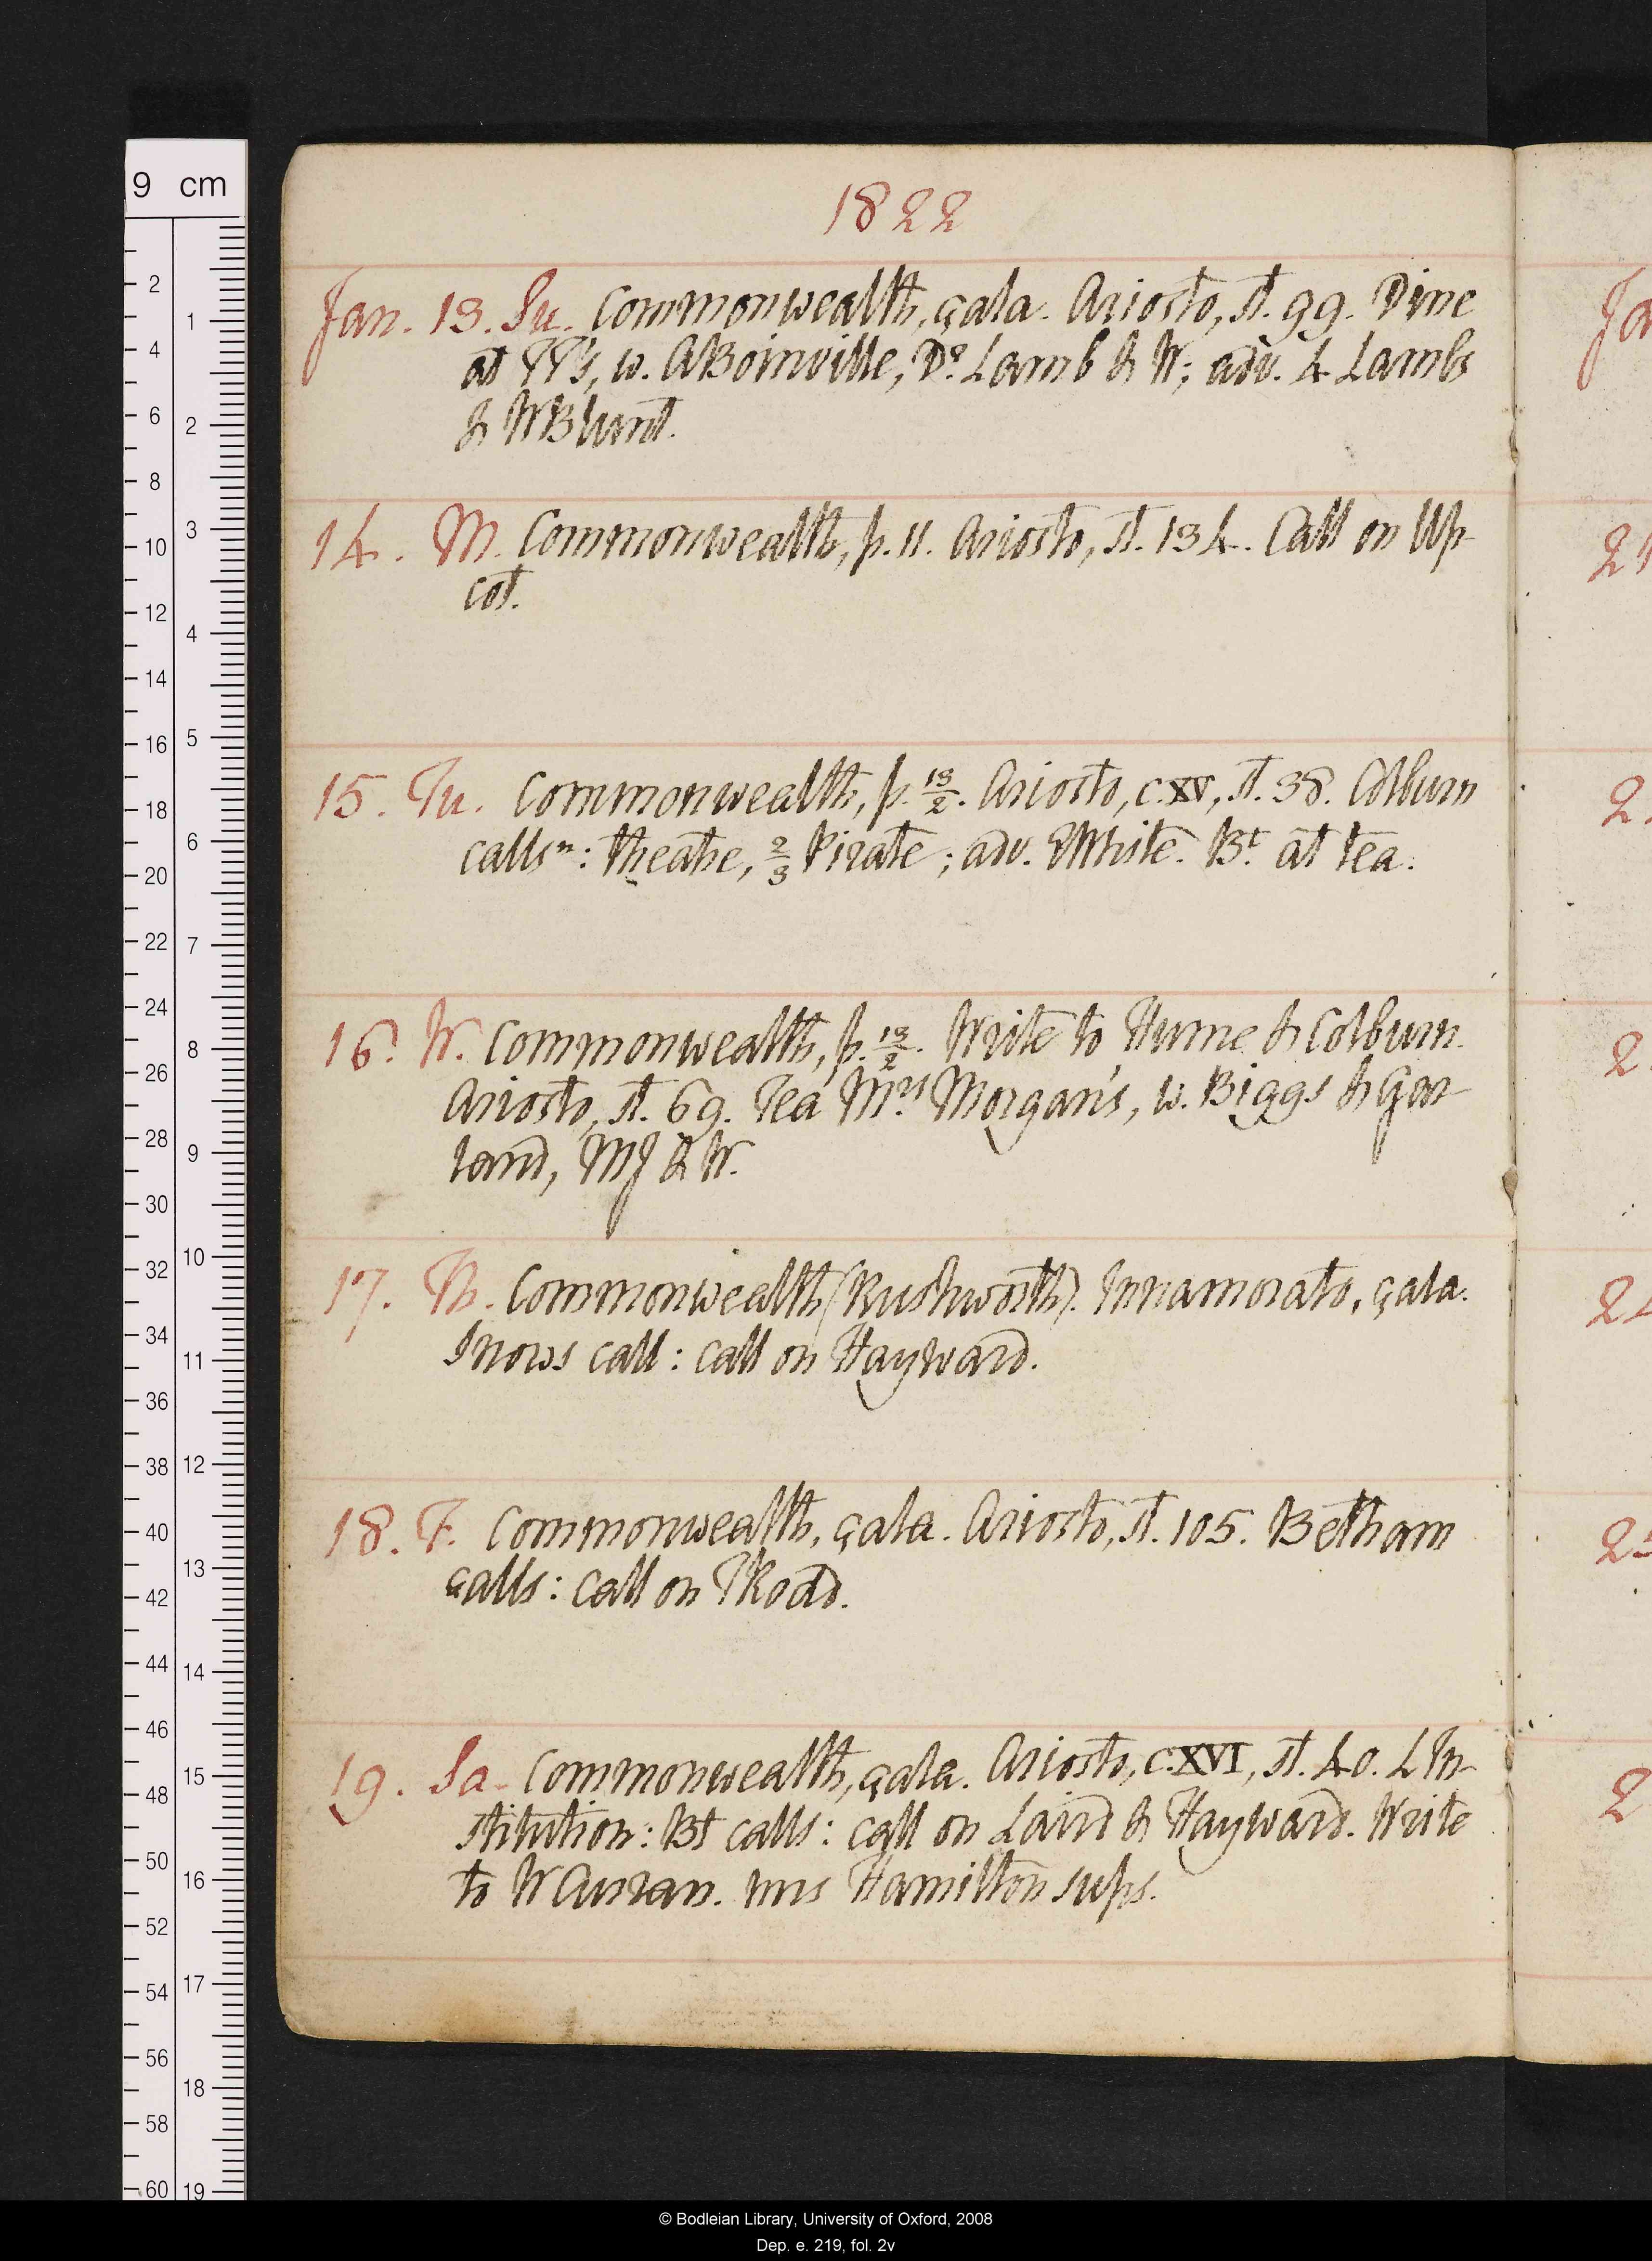 9 cm
1822
Jan. 13. Su. Commonwealth, çala. Ariosto, st. 99. Dine
at TT's, w. ABoinville, Dº. Lamb & W; adv. 4 Lambs
& WBlunt.
14. M. Commonwealth, p. 11. Ariosto, st. 134. Call on Up-
cot.
15. Tu. Commonwealth, p. 13/2. Ariosto, c. XV, st. 38. Colburn
calls ⁿ: theatre, 2/3 Pirate; adv. White. Bt. at tea.
16. W. Commonwealth, p. 13/2. Write to Hume & Colburn.
Ariosto, st. 69. Tea Mrs Morgan's, w. Biggs & Gar-
land, MJ & W.
17. Th. Commonwealth (Rushworth). Innamorato, çala.
Snows call: call on Hayward.
18. F. Commonwealth, çala. Ariosto, st. 105. Betham
calls: call on TRodd.
19. Sa. Commonwealth, çala. Ariosto, c. XVI, st. 40. L In-
stitution: Bt calls: call on Laird & Hayward. Write
to WCurran. mrs Hamilton sups.
© Bodleian Library, University of Oxford, 2008
Dep. e. 219, fol. 2v